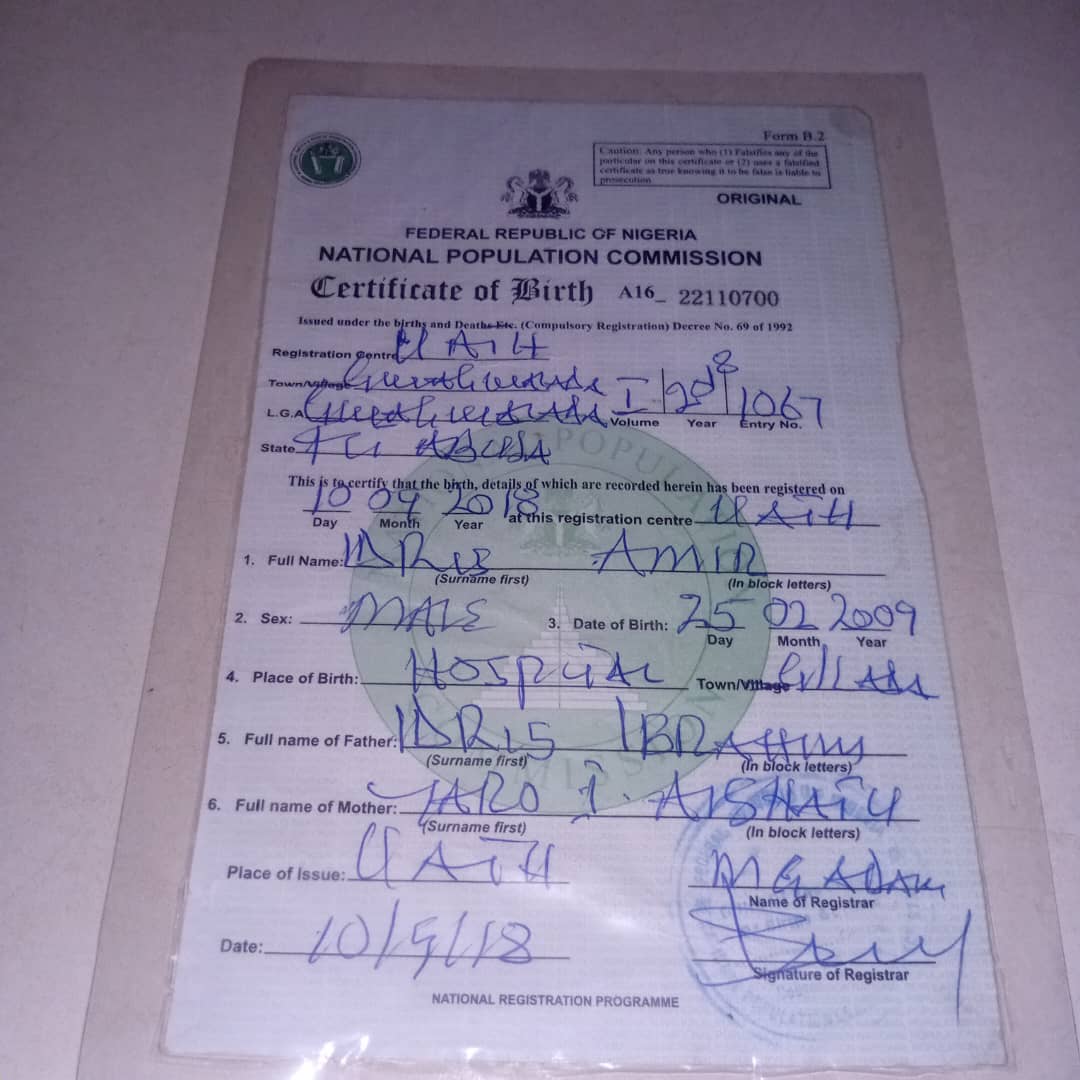 Form B.2
Caution: Any person who (1) Falsifies any of the
particular on this certificate or (2) uses a falsified
certificate as true knowing it to be false is liable to
prosecution
ORIGINAL
FEDERAL REPUBLIC OF NIGERIA
NATIONAL POPULATION COMMISSION
Certificate of Birth A16_ 22110700
Issued under the births and Deaths Etc. (Compulsory Registration) Decree No. 69 of 1992
Registration Centre UATH
Town/Village GWAGWALADA
L.G.A GWAGWALADA I 1067
Volume Year Entry No.
State FCT ABUJA
This is to certify that the birth, details of which are recorded herein has been registered on
10 09 2018 at this registration centre UATH
Day Month Year
1. Full Name: IDRIS AMIR
(Surname first) (In block letters)
2. Sex: MALE 3. Date of Birth: 25 02 2009
Day Month Year
4. Place of Birth: HOSPITAL Town/Village G/LADA
5. Full name of Father: IDRIS IBRAHIM
(Surname first) (In block letters)
6. Full name of Mother: YARO I. AISHATU
(Surname first) (In block letters)
Place of Issue: UATH
Name of Registrar
Date: 10/9/18
Signature of Registrar
NATIONAL REGISTRATION PROGRAMME